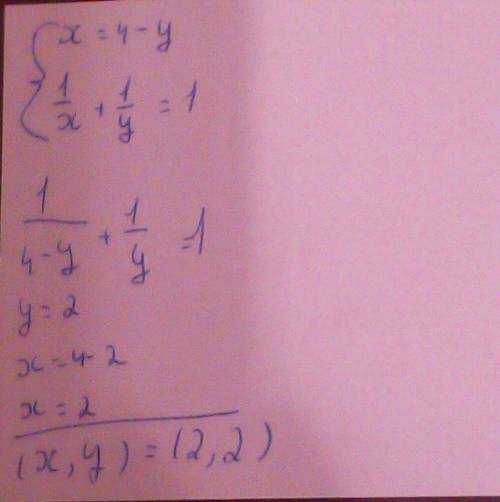 x = 4 - y
1/x + 1/y = 1
1/(4-y) + 1/y = 1
y = 2
x = 4 - 2
x = 2
(x, y) = (2, 2)